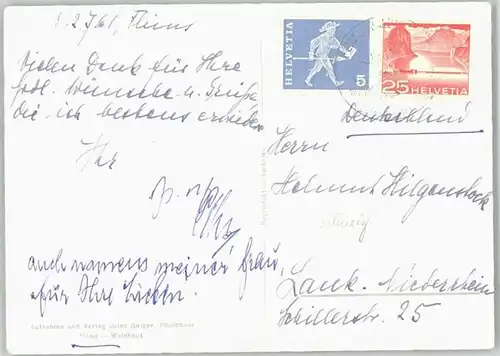 1. 2. 761, Flims
Vielen Dank für Ihre
frdl. Wünsche u. Grüße,
die ich bestens erwidere
Ihr
auch namens meiner Frau
für Ihre Lieben.
Aufnahme und Verlag Jules Geiger, Photohaus
Flims - Waldhaus
HELVETIA
5
25 HELVETIA
Deutschland
Herrn
Helmut Hilgenstock
Lank. Niederrhein
Schillerstr. 25